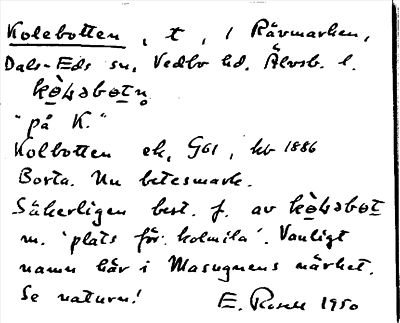 Kolebotten, t, i Rävmarken,
Dals-Eds sn, Vedbo hd, Älvsb. l.
kò̱ɥəbo̱tn̥
"på K."
Kolbotten ek, G61, kb 1886
Borta. Nu betesmark.
Säkerligen best. f. av kò̱ɥəbo̱t
m. 'plats för kolmila'. Vanligt
namn här i Masugnens närhet.
Se naturn! E. 1950